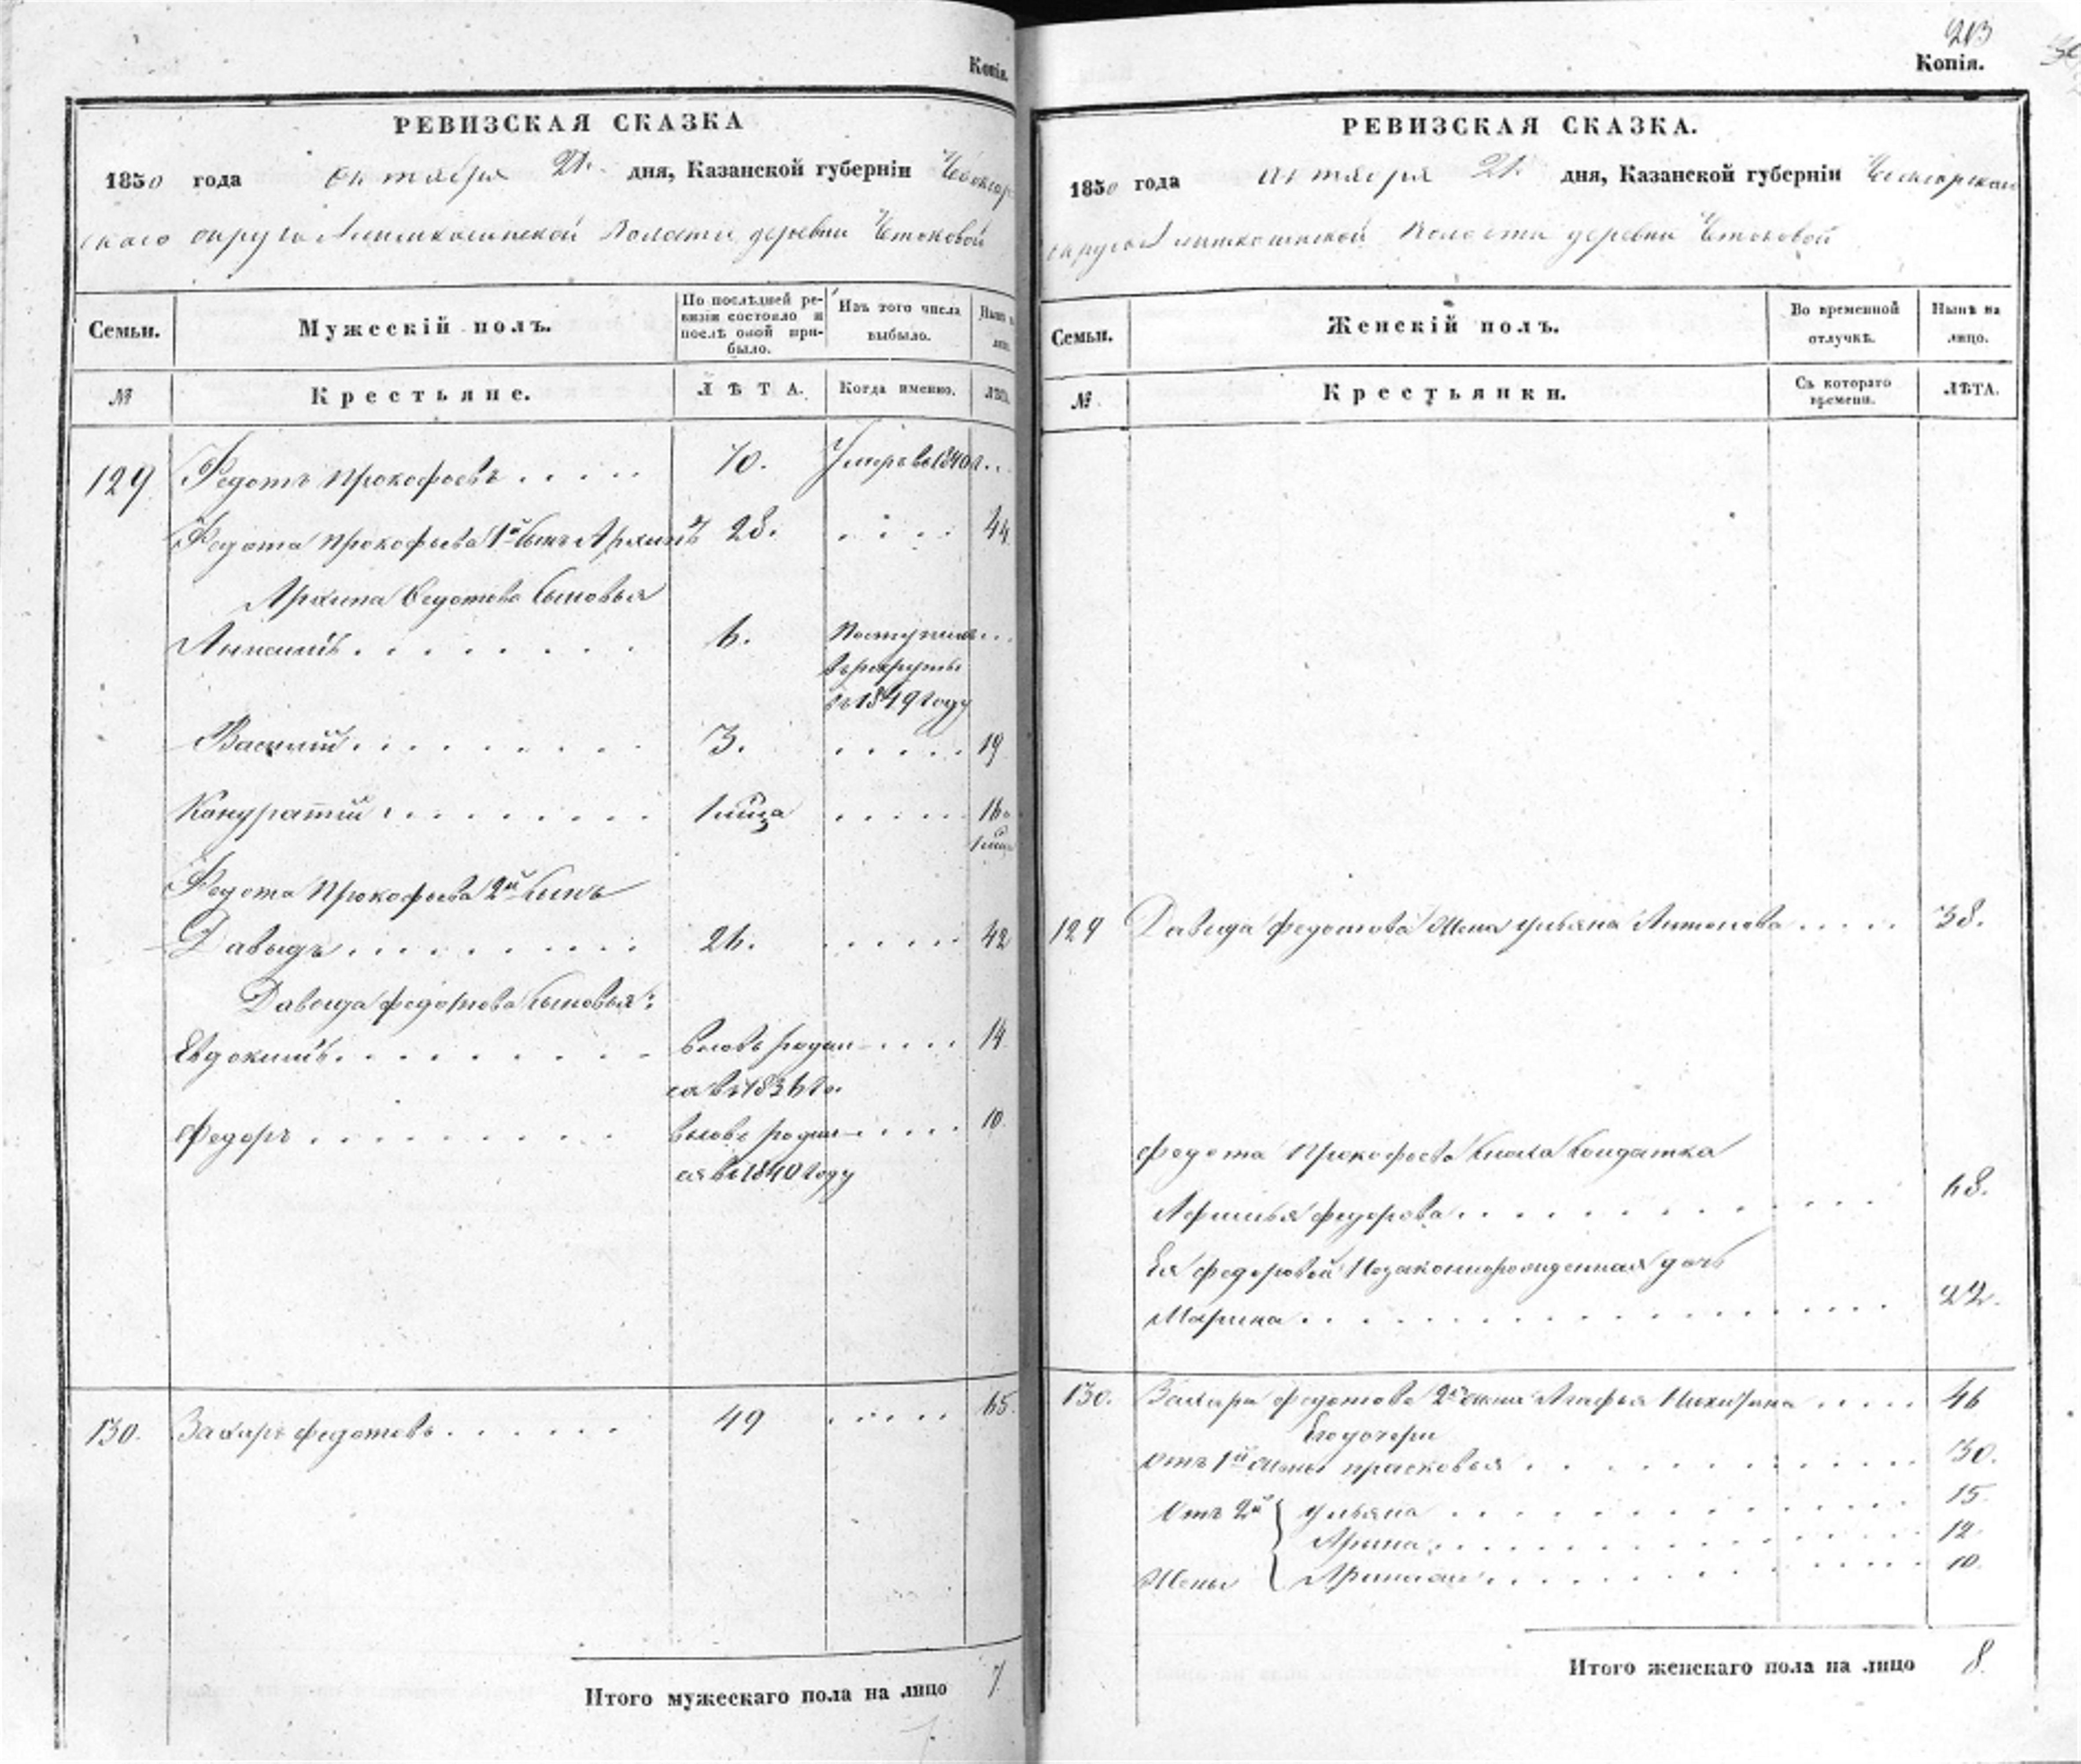 Копія.
РЕВИЗСКАЯ СКАЗКА
1850 года октября 21. дня, Казанской губерніи Чебоксар
скаго округа Липшкасинской Волости деревни Чемоковой
Семьи. Мужескій полъ. По послѣдней ре- Изъ того числа Нынѣ на
визіи состояло и выбыло. лицо.
послѣ оной при-
было.
№ Крестьяне. ЛѢТА. Когда именно. ЛѢТА.
129 Федотъ Прокофьевъ . . . . . 70. Умеръ въ 1840 г. . .
Федота Прокофьева 1й Сынъ Архипъ 28. . . . . 44
Архипа Федотова Сыновья
Анисимъ . . . . . . . . 6. Поступилъ . .
въ рекруты
въ 1849 году
Василій . . . . . . . . . 3. . . . . . 19
Кондратій . . . . . . . . 1/мца . . . . . 16
1/мца
Федота Прокофьева 2й Сынъ
Давыдъ . . . . . . . . . 26. . . . . . 42
Давыда Федотова Сыновья:
Евдокимъ . . . . . . . . . вновь родил . . . . 14
ся въ 1836 го.
Федоръ . . . . . . . . . вновь родил . . . . 10.
ся въ 1840 году
130. Захаръ Федотовъ . . . . . . 49 . . . . . 65.
Итого мужескаго пола на лицо 7
213
Копія.
РЕВИЗСКАЯ СКАЗКА.
1850 года октября 21. дня, Казанской губерніи Чебоксарскаго
округа Липшкасинской Волости деревни Чемоковой
Семьи. Женскій полъ. Во временной Нынѣ на
отлучкѣ. лицо.
№. Крестьянки. Съ котораго ЛѢТА.
времени.
129 Давыда Федотова Жена Ульяна Антонова . . . . . 38.
Федота Прокофьева Сноха Солдатка
Афимья Федорова . . . . . . . . . . . . . 68.
Ея Федоровой Незаконнорожденная дочь
Марина . . . . . . . . . . . . . . . . . 22.
130. Захара Федотова 2я жена Агафья . . . . . 46
Его дочери
Отъ 1й жены Прасковья . . . . . . . . . . . . 30.
Отъ 2й Ульяна . . . . . . . . . . . . . . 15.
Арина . . . . . . . . . . . . . . 12.
Жены . . . . . . . . . . . . . . 10.
Итого женскаго пола на лицо 8.